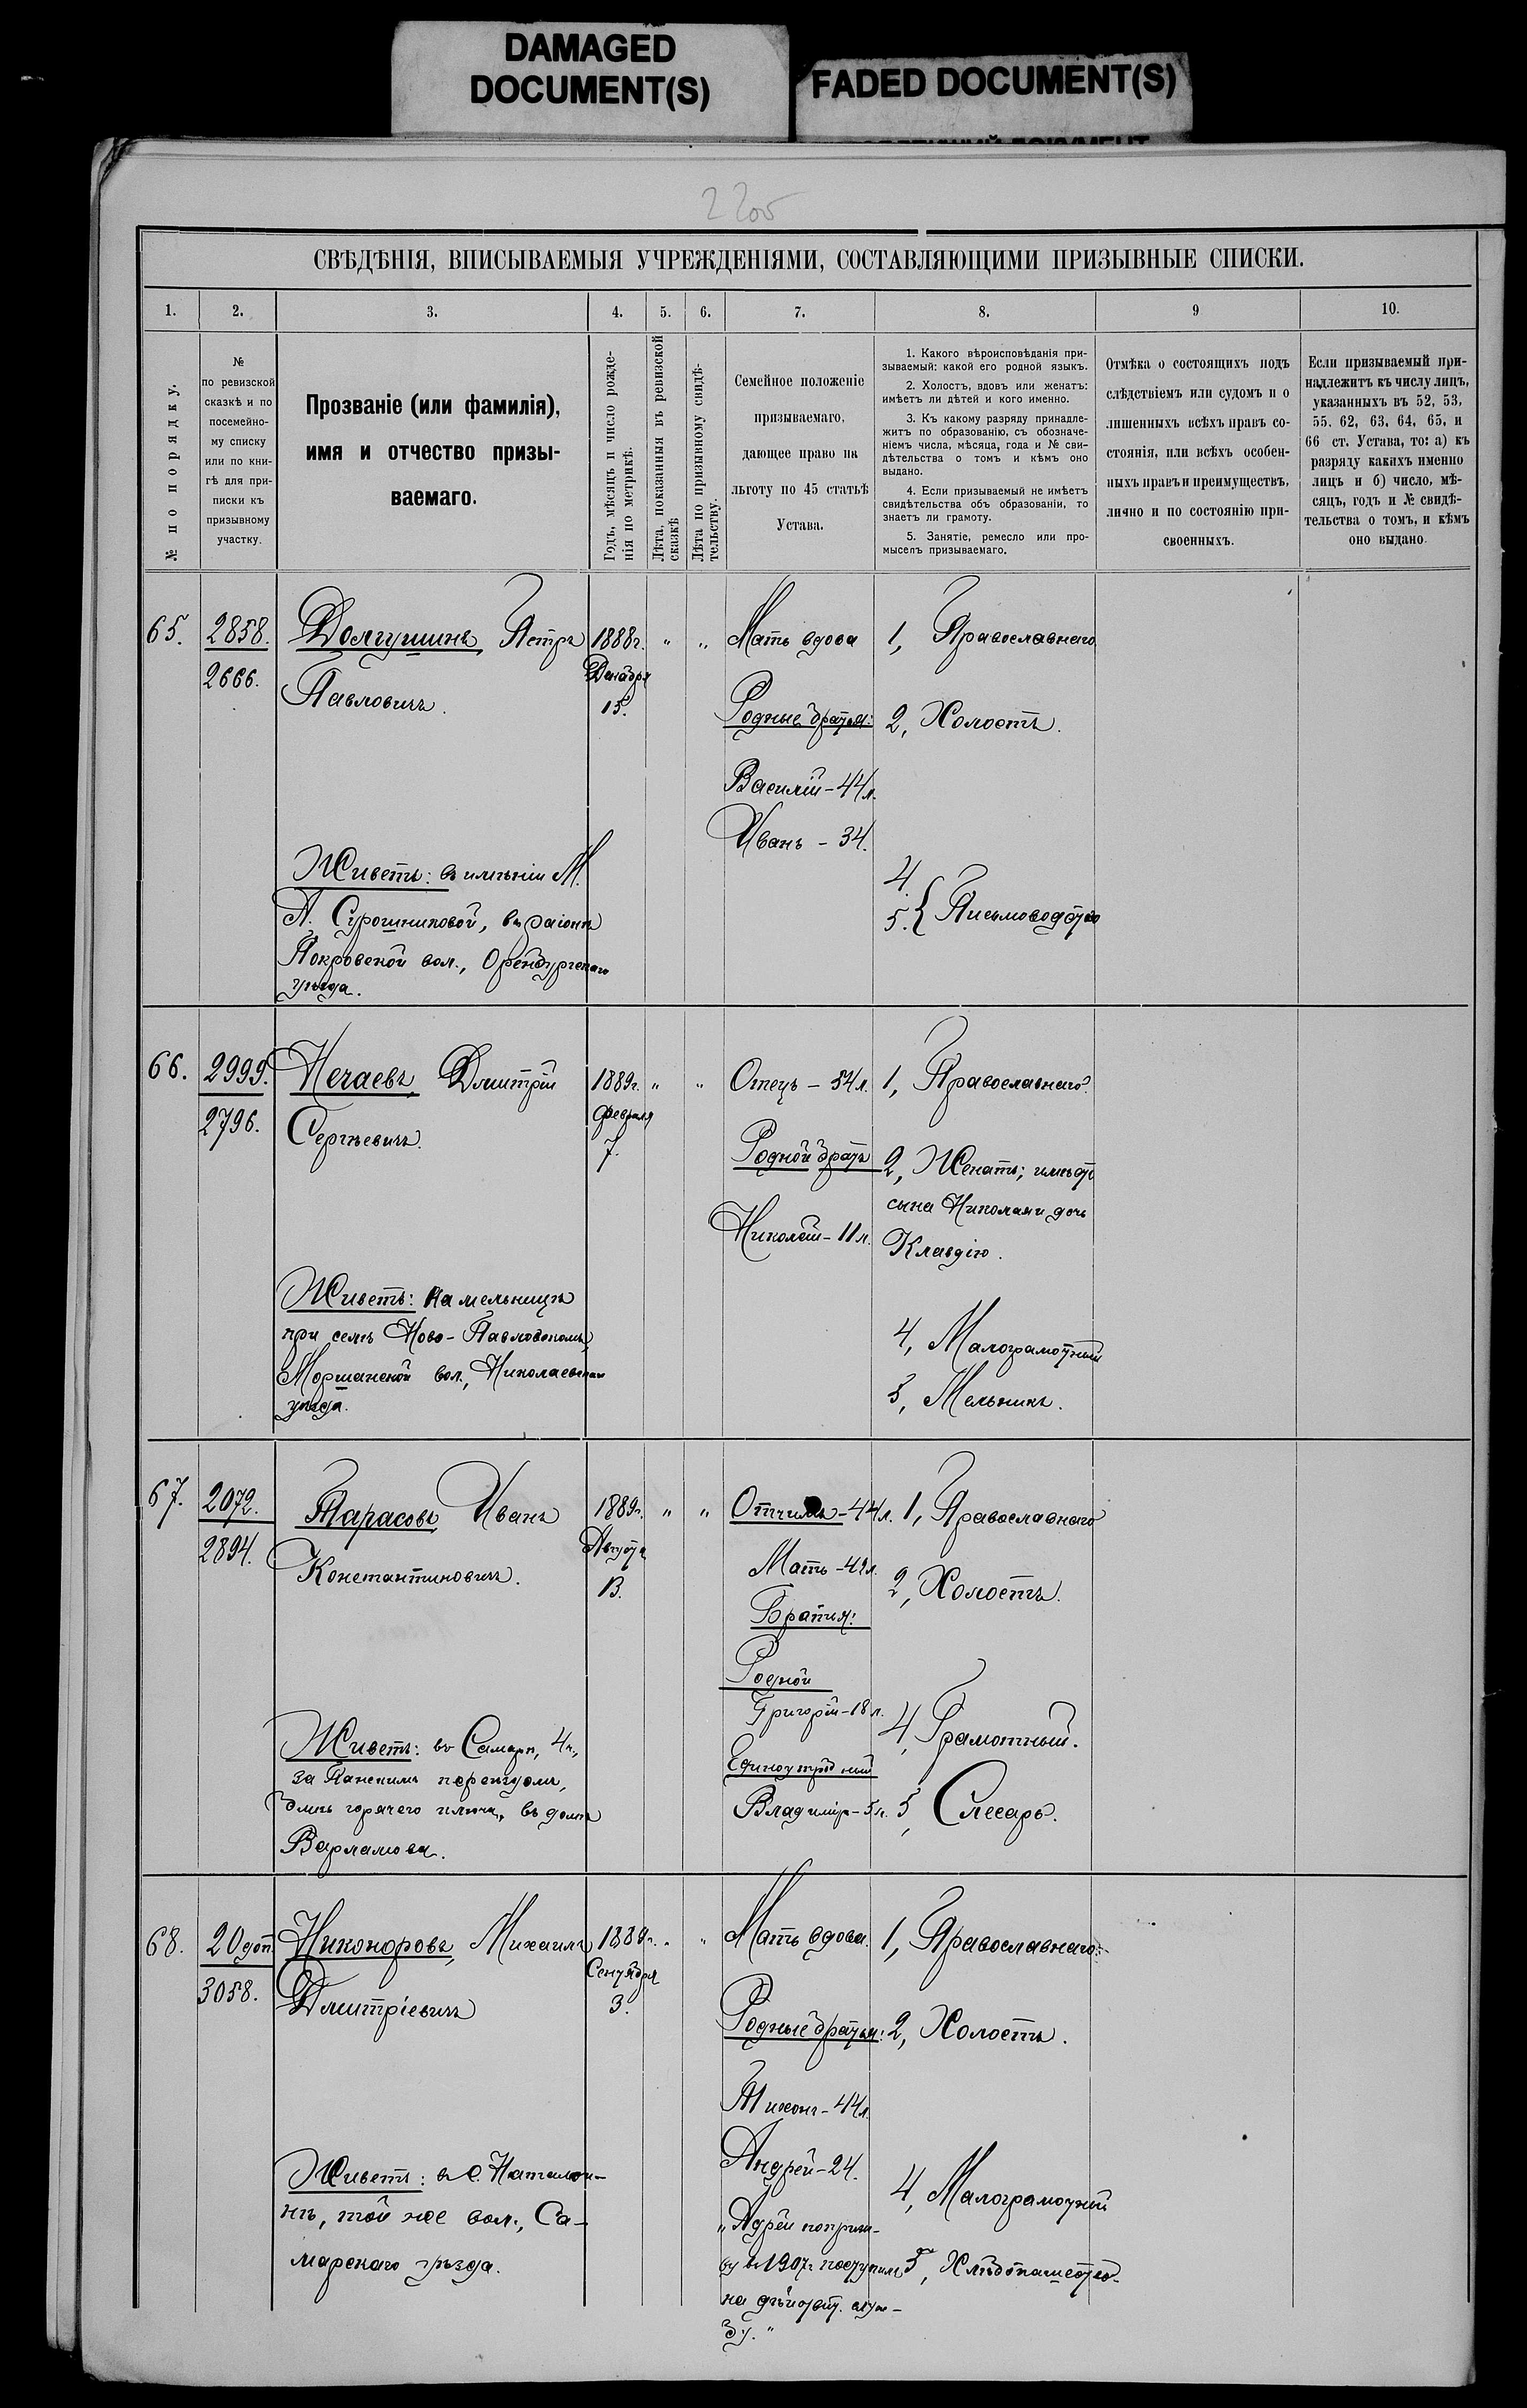 DAMAGED
DOCUMENT(S)
FADED DOCUMENT(S)
2205
СВѢДѢНІЯ, ВПИСЫВАЕМЫЯ УЧРЕЖДЕНІЯМИ, СОСТАВЛЯЮЩИМИ ПРИЗЫВНЫЕ СПИСКИ.
1.
2.
3.
4.
5.
6.
7.
8.
9
10.
№ по порядку.
№
по ревизской
сказкѣ и по
посемейно-
му списку
или по кни-
гѣ для при-
писки къ
призывному
участку.
Прозваніе (или фамилія),
имя и отчество призы-
ваемаго.
Годъ, мѣсяцъ и число рожде-
нія по метрикѣ.
Лѣта, показанныя въ ревизской
сказкѣ
Лѣта по призывному свидѣ-
тельству.
Семейное положеніе
призываемаго,
дающее право на
льготу по 45 статьѣ
Устава.
1. Какого вѣроисповѣданія при-
зываемый: какой его родной языкъ.
2. Холостъ, вдовъ или женатъ:
имѣетъ ли дѣтей и кого именно.
3. Къ какому разряду принадле-
житъ по образованію, съ обозначе-
ніемъ числа, мѣсяца, года и № сви-
дѣтельства о томъ и кѣмъ оно
выдано.
4. Если призываемый не имѣетъ
свидѣтельства объ образованіи, то
знаетъ ли грамоту.
5. Занятіе, ремесло или про-
мыселъ призываемаго.
Отмѣка о состоящихъ подъ
слѣдствіемъ или судомъ и о
лишенныхъ всѣхъ правъ со-
стоянія, или всѣхъ особен-
ныхъ правъ и преимуществъ,
лично и по состоянію при-
своенныхъ.
Если призываемый при-
надлежитъ къ числу лицъ,
указанныхъ въ 52, 53,
55, 62, 63, 64, 65, и
66 ст. Устава, то: а) къ
разряду какихъ именно
лицъ и б) число, мѣ-
сяцъ, годъ и № свидѣ-
тельства о томъ, и кѣмъ
оно выдано.
65.
2858.
2666.
Долгушинъ Петръ
Павловичъ.
Живетъ: въ имѣніи М.
А. Сурошниковой, въ районѣ
Покровской вол., Оренбургскаго
уѣзда.
1888г.
Декабря
15.
„ „
Мать вдова
Родные братья:
Василій – 44 л.
Иванъ – 34.
1, Православнаго
2, Холостъ.
4.
5. { Письмоводство
66.
2999.
2796.
Нечаевъ Дмитрій
Сергѣевичъ.
Живетъ: на мельницѣ
при селѣ Ново-Павловскомъ,
Моршанской вол., Николаевскаго
уѣзда.
1889г.
Февраля
7.
„ „
Отецъ – 54 л.
Родной братъ
Николай – 11 л.
1, Православнаго
2, Женатъ; имѣетъ
сына Николая и дочь
Клавдію.
4, Малограмотный
5, Мельникъ.
67.
2072.
2894.
Тарасовъ Иванъ
Константиновичъ.
Живетъ: въ Самарѣ, 4 ч.,
за Панскимъ переѣздомъ,
близъ горячего ключа, въ домѣ
Варламова.
1889г.
Августа
13.
„ „
Отчимъ – 44 л.
Мать – 42 л.
Братья:
Родной
Григорій – 18 л.
Единоутробный
Владиміръ – 5 л.
1, Православнаго
2, Холостъ.
4, Грамотный.
5, Слесарь.
68.
20 доп.
3058.
Никоноровъ Михаилъ
Дмитріевичъ
Живетъ: въ с. Натальи-
нѣ, той же вол., Са-
марскаго уѣзда.
1889г.
Сентября
3.
„ „
Мать вдова.
Родные братья:
Тихонъ – 44 л.
Андрей – 24.
„Адрей по призы-
ву въ 1907 г. поступилъ
на дѣйствит. служ-
бу."
1, Православнаго.
2, Холостъ.
4, Малограмотный
5, Хлѣбопашество.